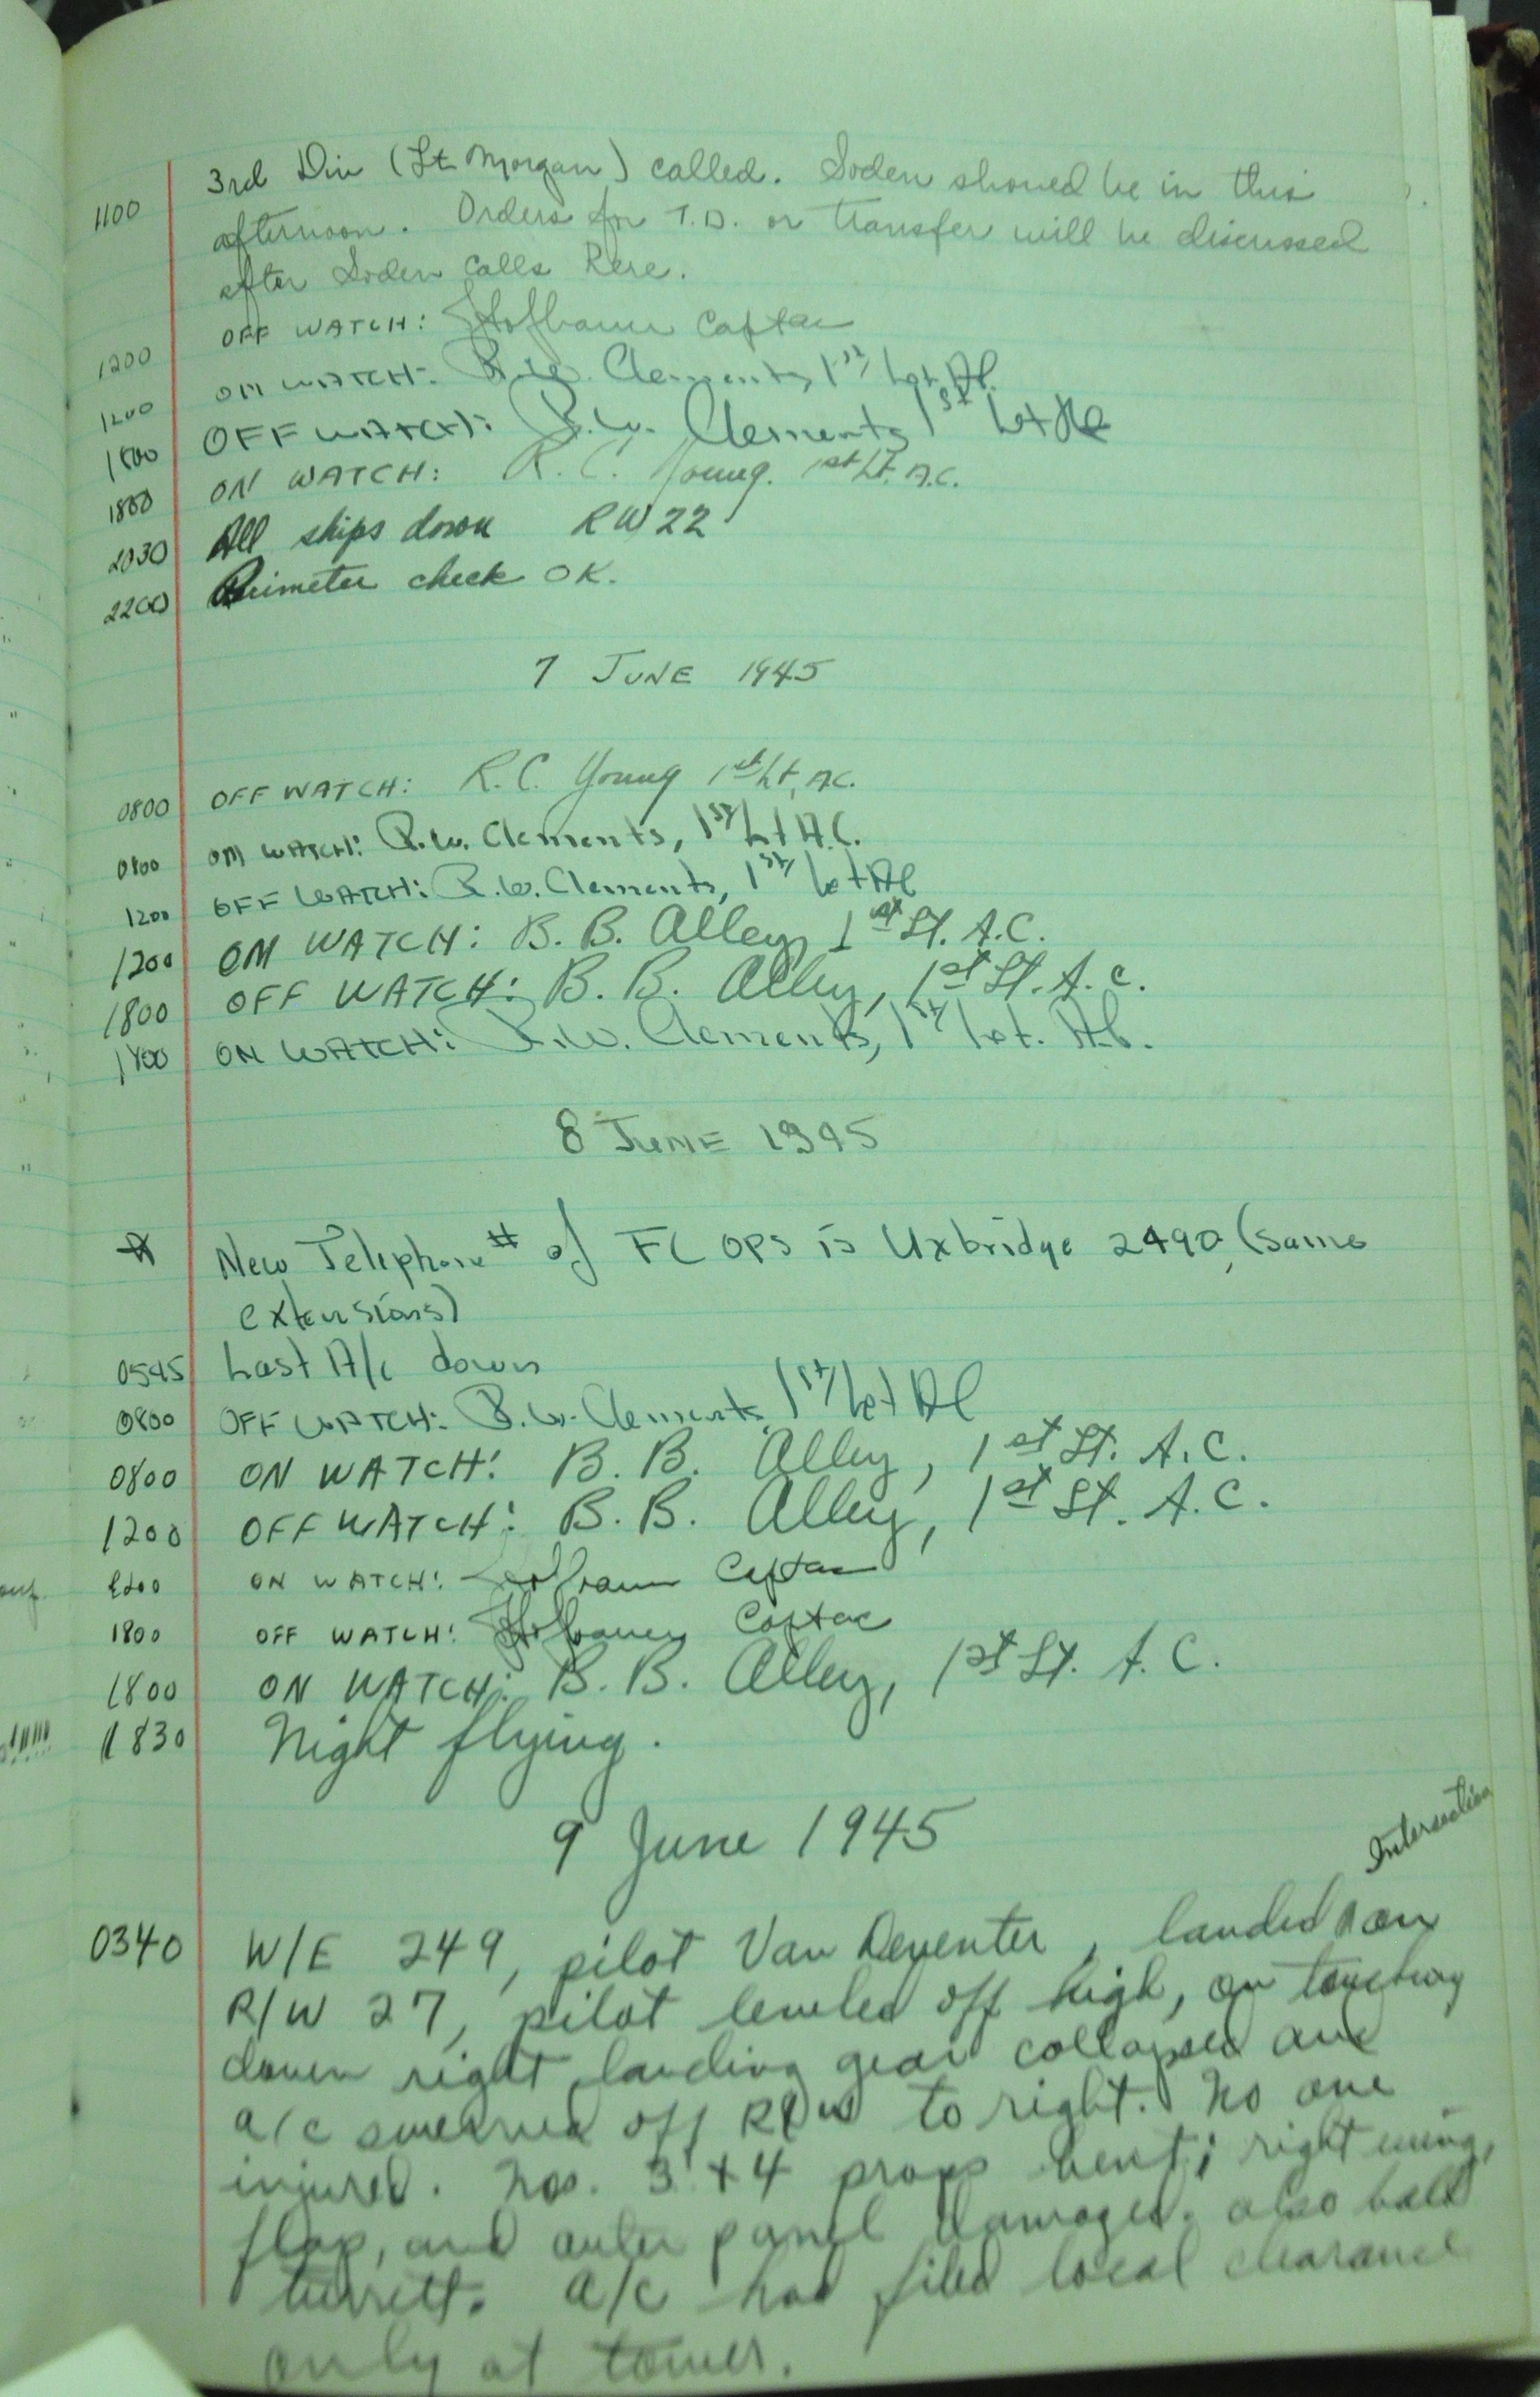 1100 3rd Div (Lt Morgan) called. Soden should be in this
afternoon. Orders for T.D. or transfer will be discussed
after Soden calls here.
1200 OFF WATCH: Capt ac
1200 ON WATCH: R.W. Clements, 1st Lt. AC
1800 OFF WATCH: R.W. Clements 1st Lt AC
1800 ON WATCH: R. C. Young. 1st Lt. A.C.
2030 All ships down RW 22
2200 Perimeter check OK.
7 JUNE 1945
0800 OFF WATCH: R.C. Young 1st Lt, AC.
0800 ON WATCH: R.W. Clements, 1st Lt A.C.
1200 OFF WATCH: R.W. Clements, 1st Lt AC
1200 ON WATCH: B. B. Alley, 1st Lt. A.C.
1800 OFF WATCH: B. B. Alley, 1st Lt. A.C.
1800 ON WATCH: R.W. Clements, 1st Lt. A.C.
8 JUNE 1945
New Telephone # of FC OPS is Uxbridge 2490, (same
extensions)
0545 Last A/c down
0800 OFF WATCH: R.W. Clements, 1st Lt AC
0800 ON WATCH: B. B. Alley, 1st Lt. A.C.
1200 OFF WATCH: B. B. Alley, 1st Lt. A.C.
1200 ON WATCH: Capt ac
1800 OFF WATCH: Capt ac
1800 ON WATCH: B. B. Alley, 1st Lt. A.C.
1830 Night flying.
9 June 1945
Intersection
0340 W/E 249, pilot Van Deventer, landed on
R/W 27, pilot leveled off high, on touching
down right landing gear collapsed and
a/c swerved off R/W to right. No one
injured. Nos. 3 + 4 props bent; right wing,
flap, and outer panel damaged. also ball
turrett. a/c had filed local clearance
only at tower.